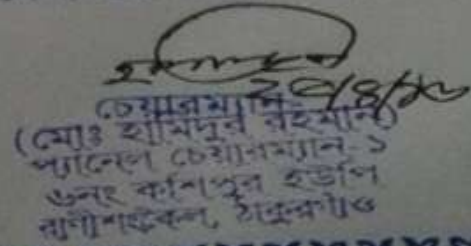 ২৭/৪/২০
চেয়ারম্যান
(মোঃ হামিদুর রহমান)
প্যানেল চেয়ারম্যান-১
৬নং কাশিপুর ইউপি
রাণীশংকৈল, ঠাকুরগাঁও